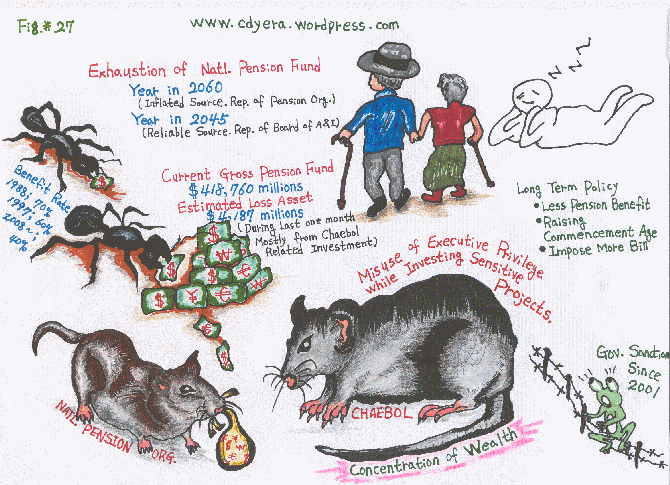 Fig.# 27
www.cdyera.wordpress.com
Exhaustion of Natl. Pension Fund
Year in 2060
(Inflated Source. Rep. of Pension Org.)
Year in 2045
(Reliable Source. Rep. of Board of A&I)
z z z
Benefit Rate
1988, 70%
1997, 60%
2008~,
40%
Current Gross Pension Fund
$ 418,760 millions
Estimated Loss Asset
$ 4,187 millions
(During last one month
Mostly from Chaebol
Related Investment)
Long Term Policy
• Less Pension Benefit
• Raising
Commencement Age
• Impose More Bill
$
₩
$
¥
€
₩
€
$
Misuse of Executive Privilege
while Investing Sensitive
Projects.
Gov. Sanction
Since
2001
NATL. PENSION ORG.
CHAEBOL
Concentration of Wealth